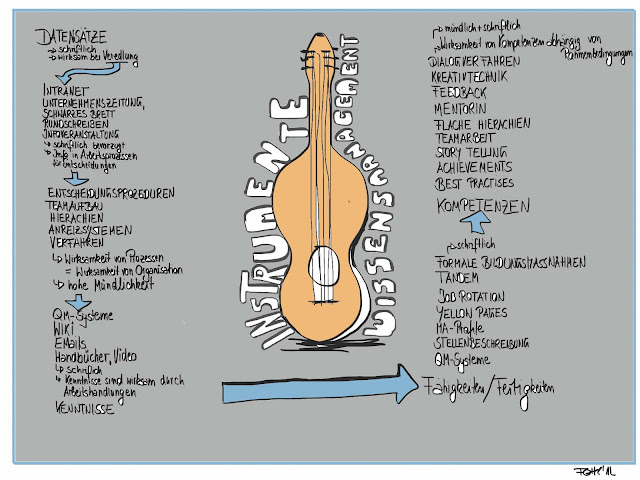 DATENSÄTZE
↳ schriftlich
↳ wirksam bei Veredlung
INTRANET
UNTERNEHMENSZEITUNG,
SCHWARZES BRETT
RUNDSCHREIBEN
INFOVERANSTALTUNG
↳ schriftlich bevorzugt
↳ Info in Arbeitsprozessen
für Entscheidungen
ENTSCHEIDUNGSPROZEDUREN
TEAMAUFBAU
HIERACHIEN
ANREIZSYSTEMEN
VERFAHREN
↳ Wirksamkeit von Prozessen
= Wirksamkeit von Organisation
↳ hohe Mündlichkeit
QM-Systeme
WIKI
EMails
Handbücher, Video
↳ schriftlich
↳ Kenntnisse sind wirksam durch
Arbeitshandlungen
KENNTNISSE
INSTRUMENTE
WISSENSMANAGEMENT
mündlich + schriftlich
Wirksamkeit von Kompetenzen abhängig von
Rahmenbedingungen
DIALOGVERFAHREN
KREATIVTECHNIK
FEEDBACK
MENTORIN
FLACHE HIERACHIEN
TEAMARBEIT
STORY TELLING
ACHIEVEMENTS
BEST PRACTISES
KOMPETENZEN
schriftlich
FORMALE BILDUNGSMASSNAHMEN
TANDEM
JOB ROTATION
YELLOW PAGES
MA-Profile
STELLENBESCHREIBUNG
QM-Systeme
Fähigkeiten/Fertigkeiten